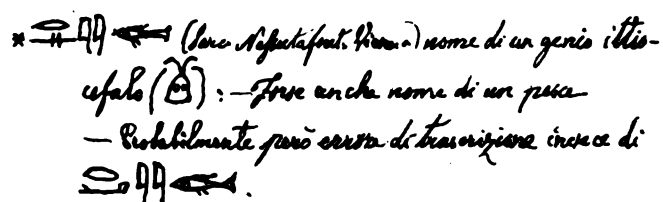 * (Sarc. Nessutafont. Vienna) nome di un genio ittio-
cefalo ( ) : — Forse anche nome di un pesce
— Probabilmente però errore di trascrizione invece di
.